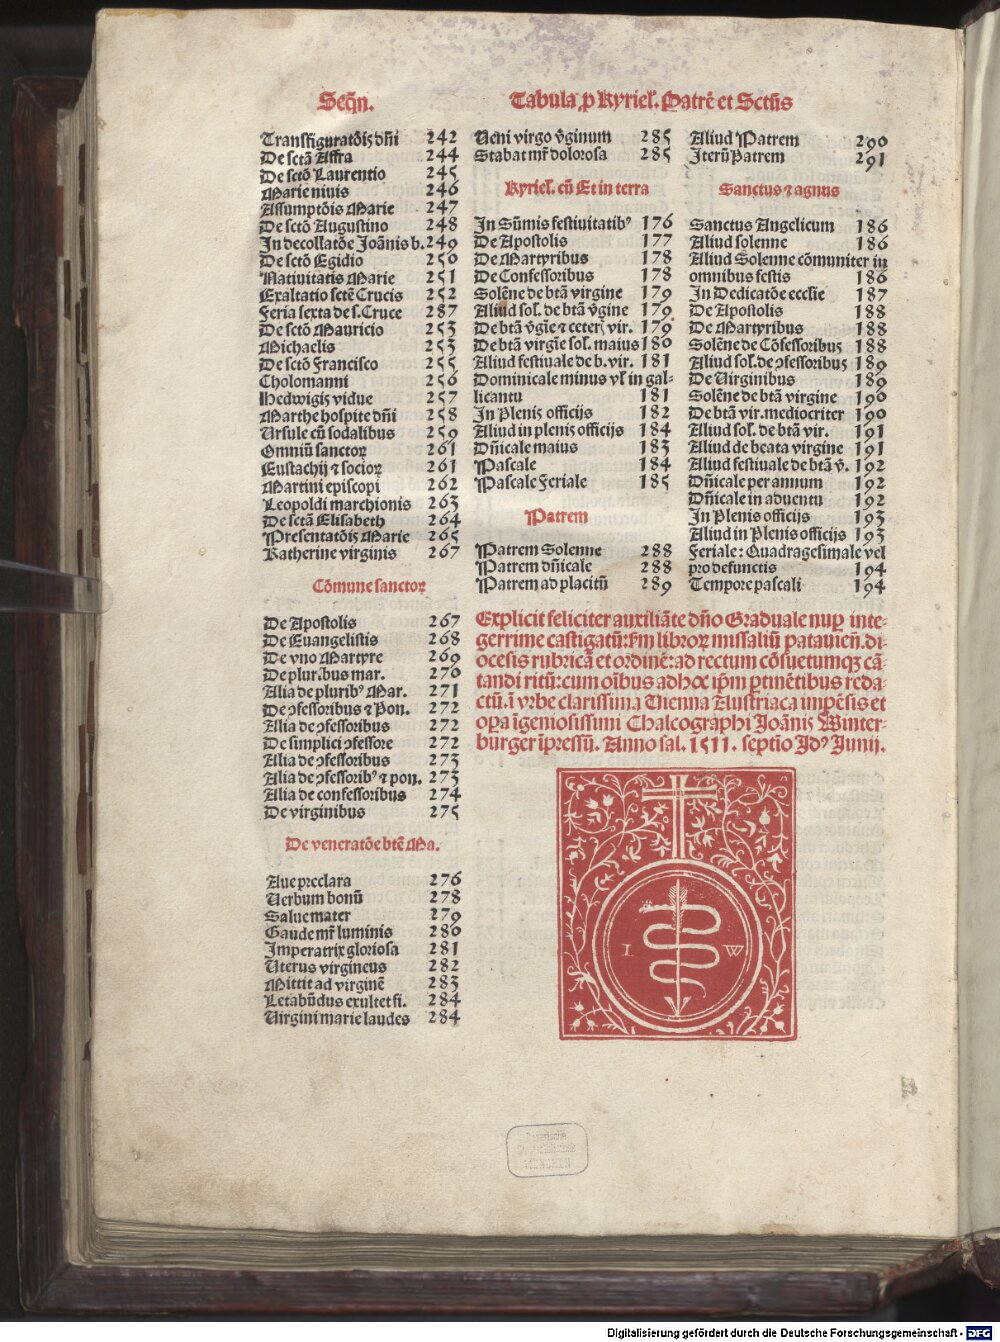 Seq̄n.
Transfiguratōis dn̄i 242
De sctā Affra 244
De sctō Laurentio 245
Marie niuis 246
Assumptōis Marie 247
De sctō Augustino 248
In decollatōe Joānis b. 249
De sctō Egidio 250
Natiuitatis Marie 251
Exaltatio sctē Crucis 252
Feria sexta de s. Cruce 287
De sctō Mauricio 253
Michaelis 253
De sctō Francisco 255
Cholomanni 256
Hedwigis vidue 257
Marthe hospite dn̄i 258
Ursule cū sodalibus 259
Omniū sanctoꝝ 261
Eustachij ⁊ socioꝝ 261
Martini episcopi 262
Leopoldi marchionis 263
De sctā Elisabeth 264
Presentatōis Marie 265
Katherine virginis 267
Cōmune sanctoꝝ
De Apostolis 267
De Euangelistis 268
De vno Martyre 269
De pluribus mar. 270
Alia de pluribꝰ Mar. 271
De ꝯfessoribus ⁊ Pon. 272
Alia de ꝯfessoribus 272
De simplici ꝯfessore 272
Alia de ꝯfessoribus 273
Alia de ꝯfessoribꝰ ⁊ pon. 273
Alia de confessoribus 274
De virginibus 275
De veneratōe btē Ma.
Aue preclara 276
Uerbum bonū 278
Salue mater 279
Gaude mr̄ luminis 280
Imperatrix gloriosa 281
Uterus virgineus 282
Mittit ad virginē 283
Letabūdus exultet fi. 284
Uirgini marie laudes 284
Tabula ꝓ Kyriel. Patrē et Sctūs
Ueni virgo v̄ginum 285
Stabat mr̄ dolorosa 285
Kyriel. cū Et in terra
In Sūmis festiuitatibꝰ 176
De Apostolis 177
De Martyribus 178
De Confessoribus 178
Solēne de btā virgine 179
Aliud sol. de btā v̄gine 179
De btā v̄gīe ⁊ ceterꝭ vir. 179
De btā virgīe sol. maius 180
Aliud festiuale de b. vir. 181
Dominicale minus vl̄ in gal-
licantu 181
In Plenis officijs 182
Aliud in plenis officijs 184
Dn̄icale maius 183
Pascale 184
Pascale Feriale 185
Patrem
Patrem Solenne 288
Patrem dn̄icale 288
Patrem ad placitū 289
Aliud Patrem 290
Iterū Patrem 291
Sanctus ⁊ agnus
Sanctus Angelicum 186
Aliud solenne 186
Aliud Solenne cōmuniter in
omnibus festis 186
In Dedicatōe ecclie 187
De Apostolis 188
De Martyribus 188
Solēne de Cōfessoribus 188
Aliud sol. de ꝯfessoribus 189
De Uirginibus 189
Solēne de btā virgine 190
De btā vir. mediocriter 190
Aliud sol. de btā vir. 191
Aliud de beata virgine 191
Aliud festiuale de btā v̄. 192
Dn̄icale per annum 192
Dn̄icale in aduentu 192
In Plenis officijs 193
Aliud in Plenis officijs 193
Feriale: Quadragesimale vel
pro defunctis 194
Tempore pascali 194
Explicit feliciter auxiliāte dn̄o Graduale nuꝑ inte-
gerrime castigatū: km̄ libroꝝ missaliū patauien̄. di-
ocesis rubricā et ordinē: ad rectum cōsuetumqꝫ cā-
tandi ritū: cum oībus ad hoc ip̄m ꝑtinētibus reda-
ctū. ī vrbe clarissima Vienna Austriaca impēsis et
oꝑa īgeniosissimi Chalcographi Joānis Winter-
burger īpressū. Anno sal. 1511. septio Idꝰ Iunij.
I W
Digitalisierung gefördert durch die Deutsche Forschungsgemeinschaft - DFG